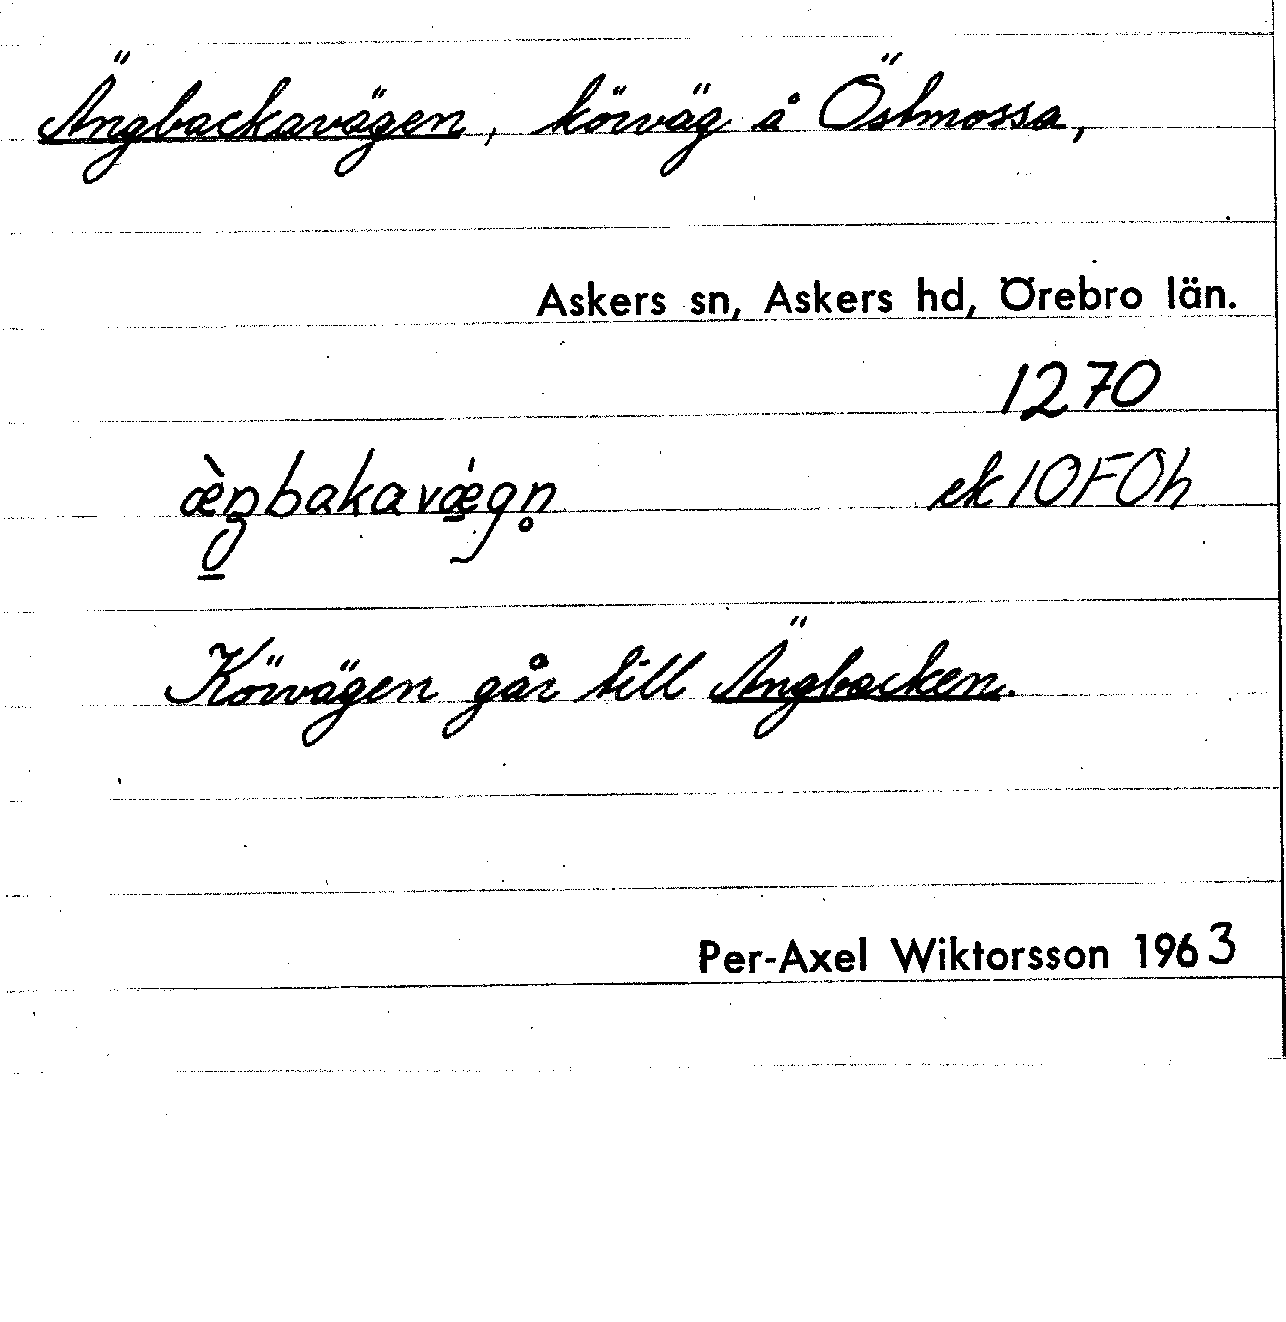 Ängbackavägen, körväg å Östmossa,
Askers sn, Askers hd, Örebro län.
1270
æ̀ŋbakavǽgn̥ ek 10F0h
Körvägen går till Ängbacken.
Per-Axel Wiktorsson 1963